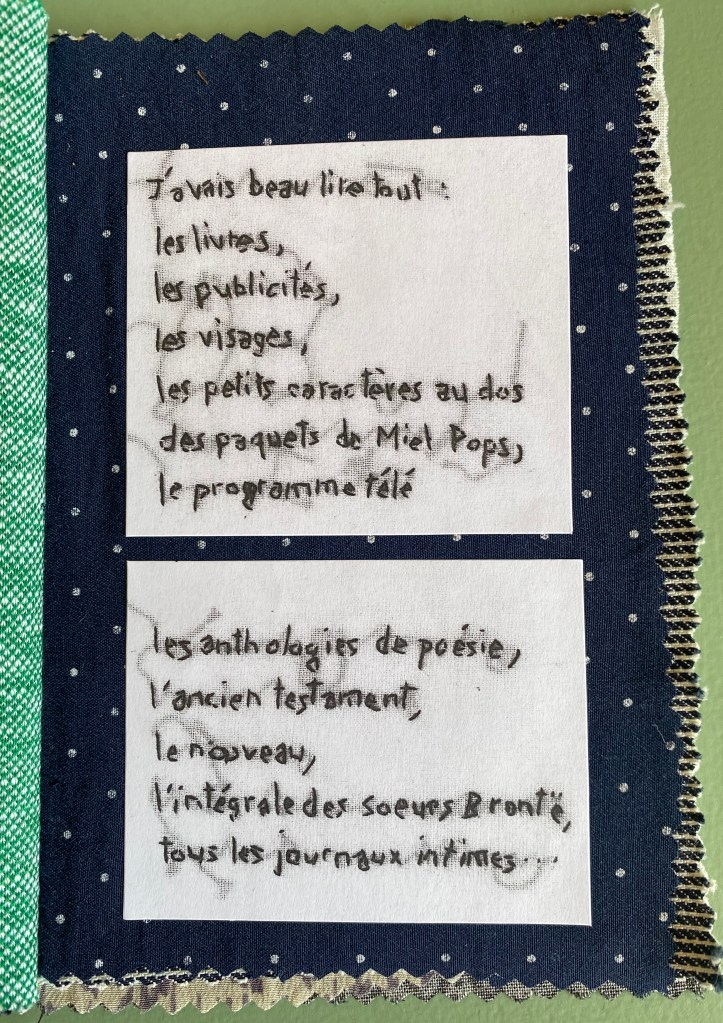 J'avais beau lire tout :
les livres,
les publicités,
les visages,
les petits caractères au dos
des paquets de Miel Pops,
le programme télé
les anthologies de poésie,
l'ancien testament,
le nouveau,
l'intégrale des soeurs Brontë,
tous les journaux intimes...